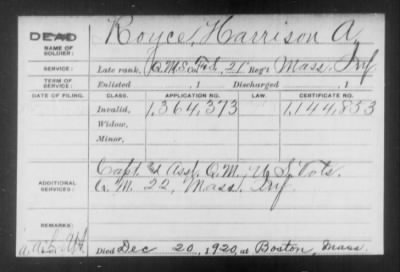 DEAD
NAME OF SOLDIER: Royce, Harrison A.
SERVICE: Late rank, Q.M.S. Co. F & S, 21" Reg't Mass. Inf.
TERM OF SERVICE: Enlisted , 1 Discharged , 1
DATE OF FILING. CLASS. APPLICATION NO. LAW. CERTIFICATE NO.
Invalid, 1,364,373 1,144,853
Widow,
Minor,
ADDITIONAL SERVICES: Capt. & Asst. Q.M., U.S. Vols.
22, Mass. Inf.
REMARKS:
Died Dec 20, 1920, at Boston, Mass.